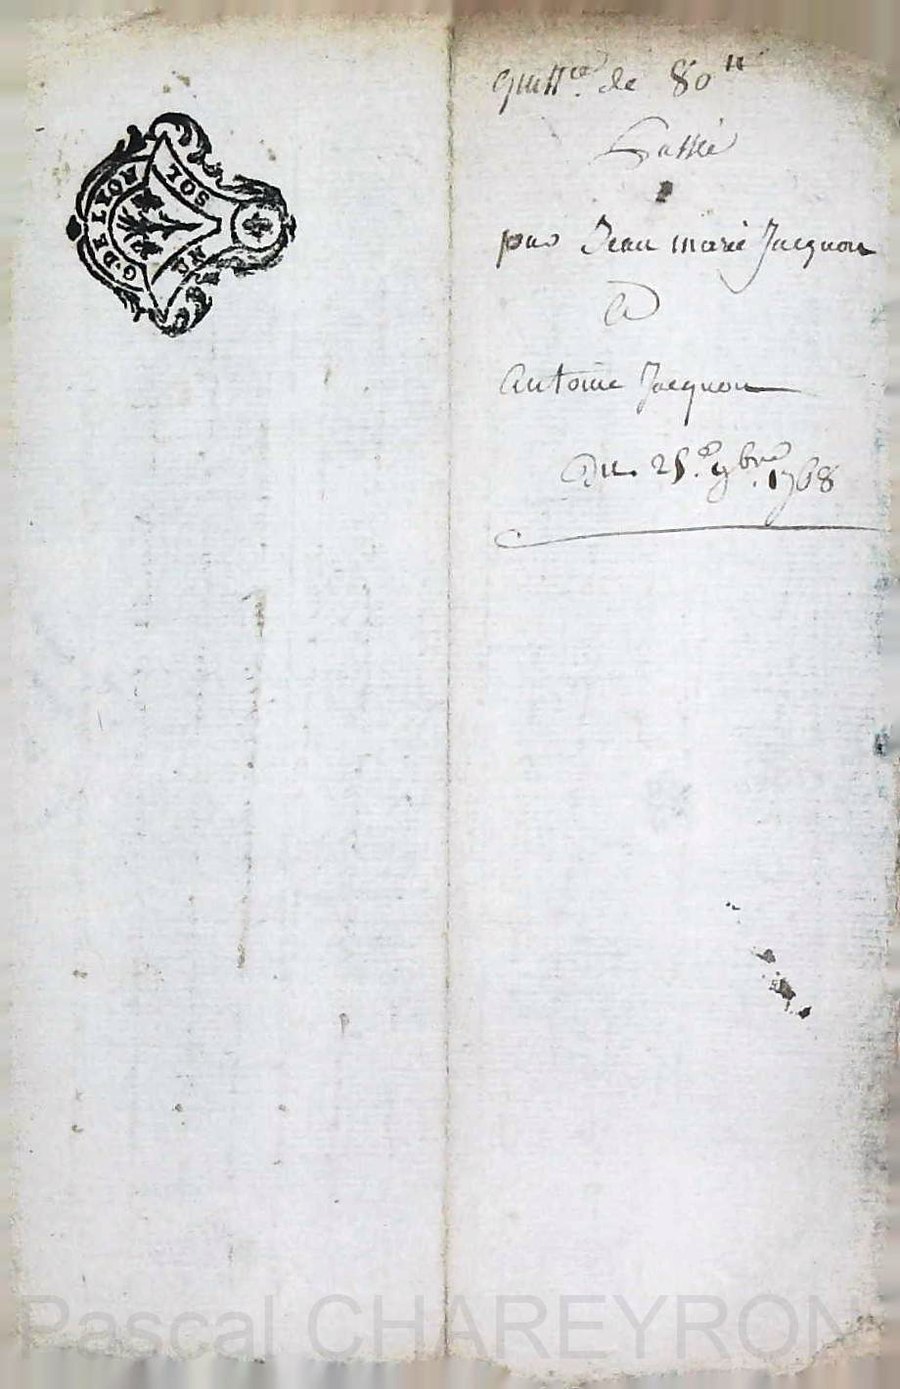 G. DE LYON
UN SOL
quittce. de 80 ᵗᵗ
Passée
par Jean marie Jacquon
A
Antoine Jacquon
Du. 25.e 9bre. 1768
Pascal CHAREYRON